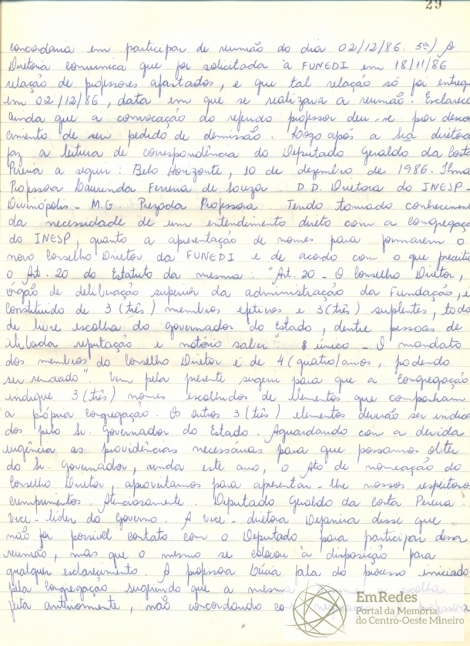 29
concordaria em participar de reunião do dia 02/12/86. 5º) A
Diretora comunica que foi solicitada à FUNEDI em 18/11/86
relação de professores afastados, e que tal relação só foi entregue
em 02/12/86, data em que se realizava a reunião. Esclarece
ainda que a convocação do referido professor deu-se por desco
cimento de seu pedido de demissão. Logo após a Sra diretora
faz a leitura de correspondência do Deputado Geraldo da Costa
Pereira a seguir: Belo Horizonte, 10 de dezembro de 1986. Ilma
Professora Ferreira de Souza D.D. Diretora do INESP -
Divinópolis - M.G. Prezada Professora Tendo tomado conhecimen
da necessidade de um entendimento direto com a congregação
do INESP, quanto a apresentação de nomes para formarem o
novo Conselho Diretor da FUNEDI e de acordo com o que preceitua
o Art. 20 do Estatuto da mesma: "Art. 20 - O Conselho Diretor,
órgão de deliberação superior da administração da Fundação, é
constituído de 3 (três) membros efetivos e 3 (três) suplentes, todos
de livre escolha do governador do Estado, dentre pessoas de
ilibada reputação e notório saber". § único - O mandato
dos membros do Conselho Diretor é de 4 (quatro) anos, podendo
ser renovado" Vem pela presente sugerir para que a Congregação
indique 3 (três) nomes escolhidos de elementos que componham
a própria congregação. Os outros 3 (três) elementos deverão ser indica
dos pelo Sr. Governador do Estado. Aguardando com a devida
urgência as providências necessárias para que possamos obter
do Sr. Governador, ainda este ano, o Ato de nomeação do
Conselho Diretor, aproveitamos para apresentar-lhe nossos respeitosos
cumprimentos. Atenciosamente. Deputado Geraldo da Costa Pereira.
vice-líder do Governo. A vice-diretora Dejanira disse que
não foi possível contato com o Deputado para participar dessa
reunião, mas que o mesmo se colocou à disposição para
qualquer esclarecimento. A professora fala do processo iniciado
pela congregação sugerindo que a mesma escolha
feita anteriormente, não concordando
EmRedes
Portal da Memória
do Centro-Oeste Mineiro